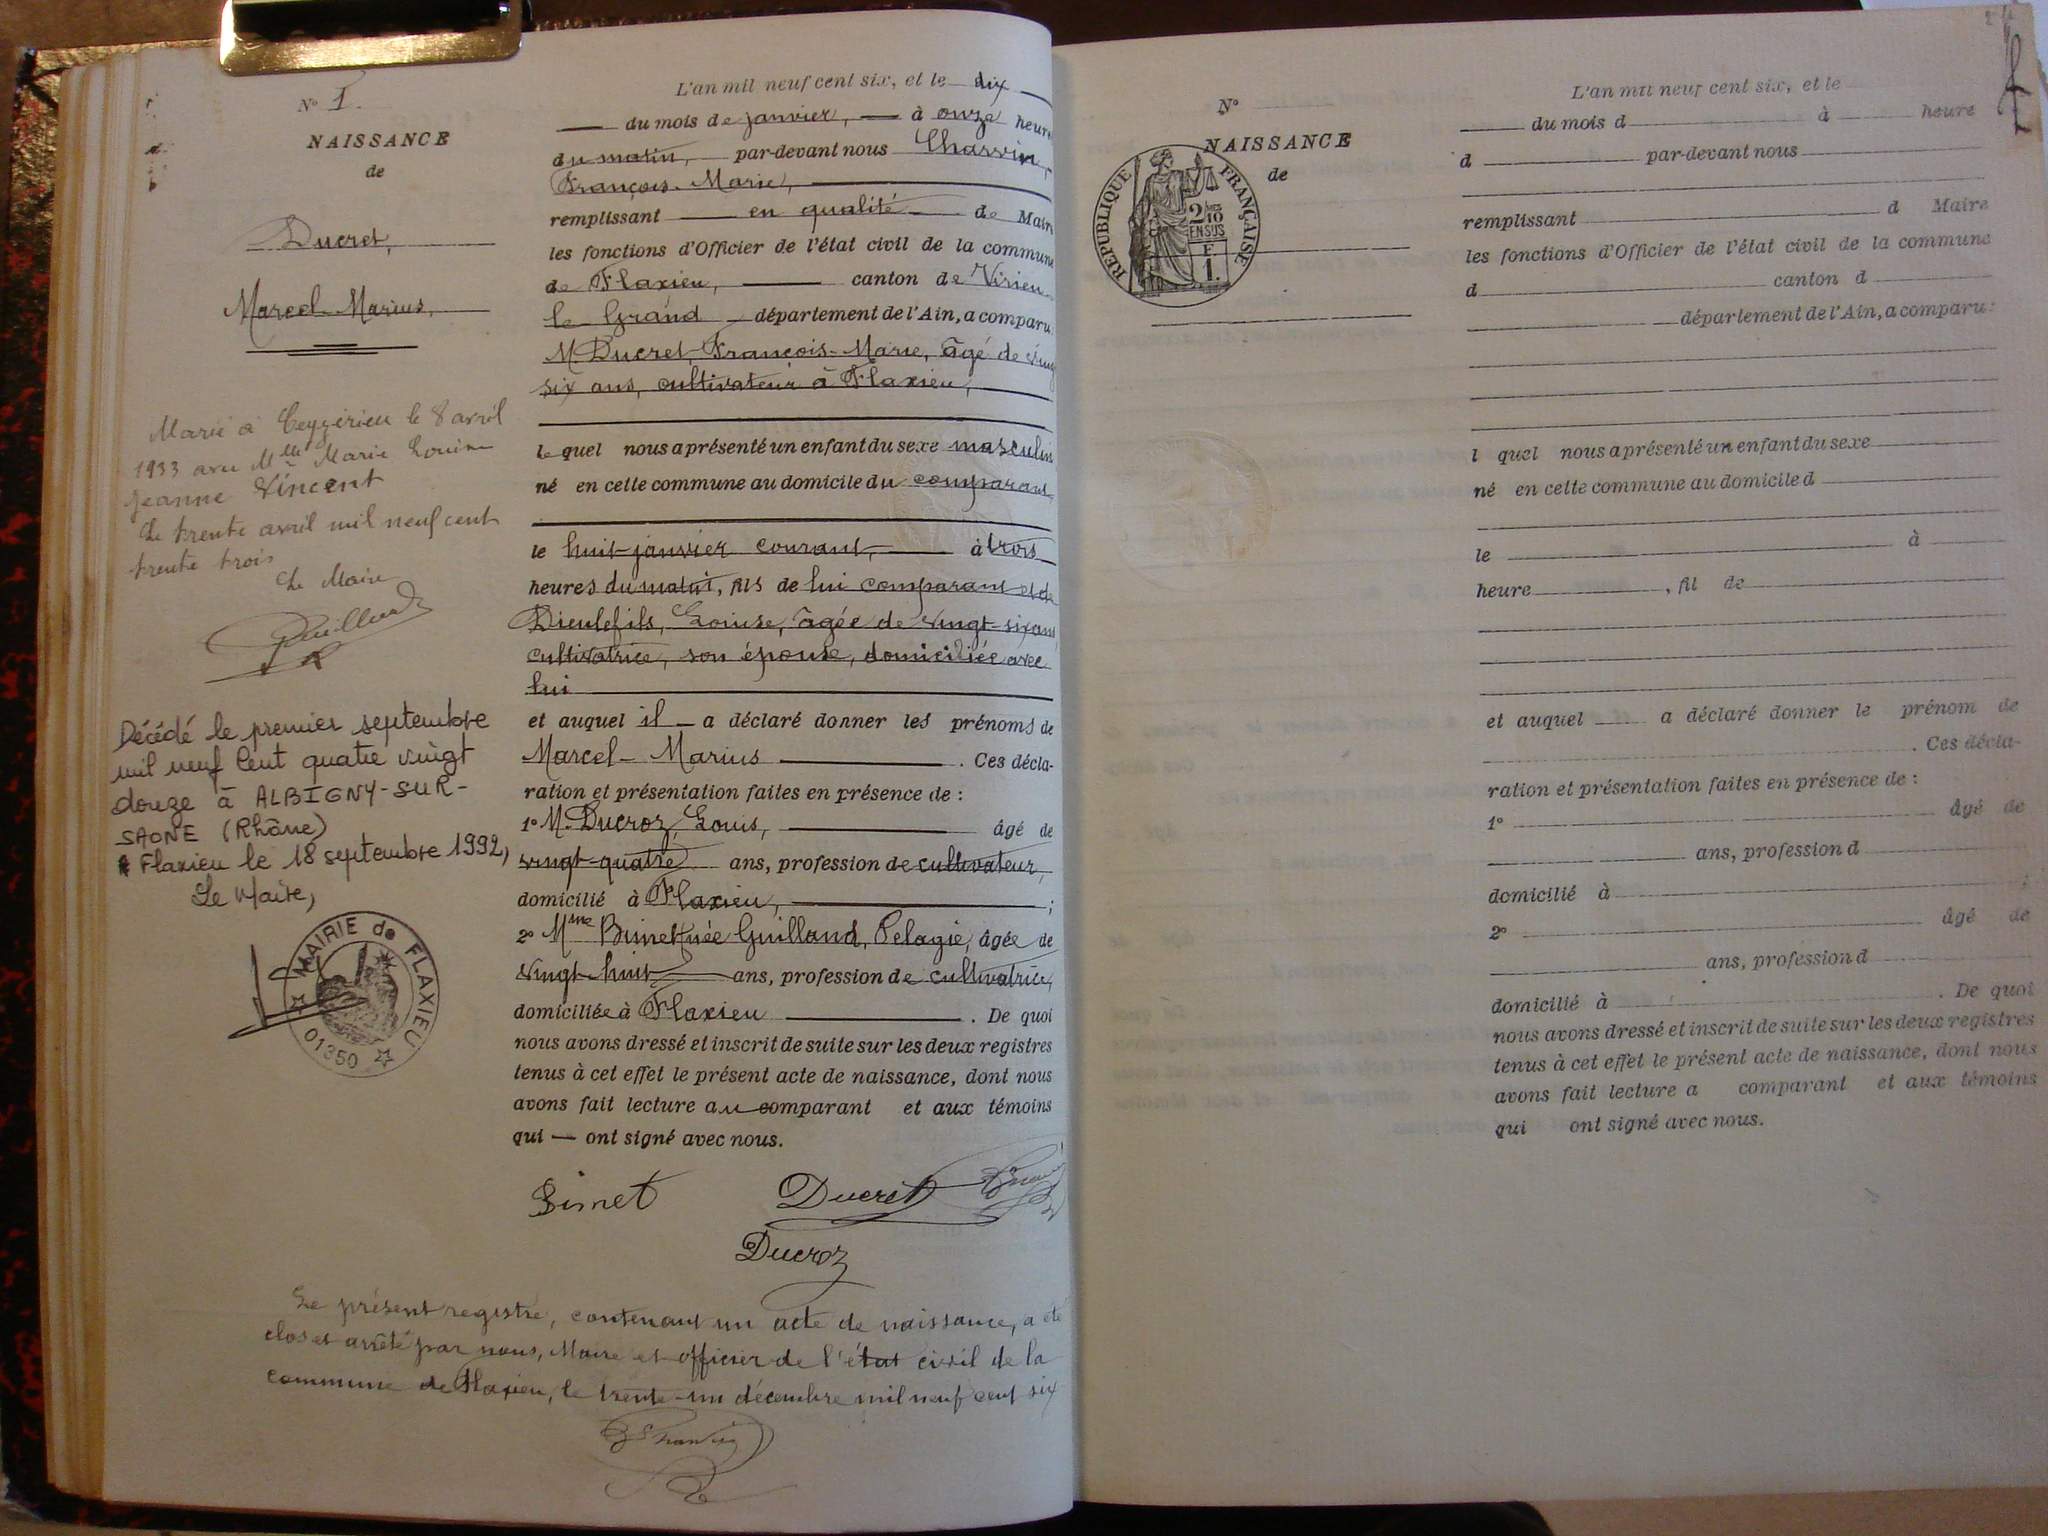 N° 1.
NAISSANCE
de
Ducret,
Marcel-Marius,
Marié à Ceyzérieu le 8 avril
1933 avec Mlle Marie Louise
Jeanne Vincent
Le trente avril mil neuf cent
trente trois
Le Maire
Décédé le premier septembre
mil neuf cent quatre vingt
douze à ALBIGNY-SUR-
SAONE (Rhône)
Flaxieu le 18 septembre 1992,
Le Maire,
MAIRIE de FLAXIEU
01350
L'an mil neuf cent six, et le dix
du mois de janvier, à onze heures
du matin, par-devant nous Charvin,
François-Marie,
remplissant en qualité de Maire
les fonctions d'Officier de l'état civil de la commune
de Flaxieu, canton de Virieu-
le Grand département de l'Ain, a comparu
M. Ducret, François-Marie, âgé de vingt
six ans, cultivateur à Flaxieu,
lequel nous a présenté un enfant du sexe masculin
né en cette commune au domicile du comparant
le huit janvier courant, à trois
heures du matin, fils de lui comparant et de
Dieulefils, Louise, âgée de vingt-six ans
cultivatrice, son épouse, domiciliée avec
lui
et auquel il a déclaré donner les prénoms de
Marcel-Marius. Ces décla-
ration et présentation faites en présence de :
1° M. Ducroz, Louis, âgé de
vingt-quatre ans, profession de cultivateur,
domicilié à Flaxieu, ;
2° Mme Bimet née Guilland, Pelagie, âgée de
vingt-huit ans, profession de cultivatrice,
domiciliée à Flaxieu. De quoi
nous avons dressé et inscrit de suite sur les deux registres
tenus à cet effet le présent acte de naissance, dont nous
avons fait lecture au comparant et aux témoins
qui — ont signé avec nous.
Bimet Ducret
Ducroz
Le présent registre, contenant un acte de naissance, a été
clos et arrêté par nous, Maire et officier de l'état civil de la
commune de Flaxieu, le trente-un décembre mil neuf cent six
N°
NAISSANCE
de
RÉPUBLIQUE FRANÇAISE
2/10
EN SUS
F.
1.
L'an mil neuf cent six, et le
du mois d à heure
d par-devant nous
remplissant d Maire
les fonctions d'Officier de l'état civil de la commune
d canton d
département de l'Ain, a comparu :
l quel nous a présenté un enfant du sexe
né en cette commune au domicile d
le à
heure , fil de
et auquel a déclaré donner le prénom de
. Ces décla-
ration et présentation faites en présence de :
1° âgé de
ans, profession d
domicilié à ;
2° âgé de
ans, profession d
domicilié à . De quoi
nous avons dressé et inscrit de suite sur les deux registres
tenus à cet effet le présent acte de naissance, dont nous
avons fait lecture a comparant et aux témoins
qui ont signé avec nous.